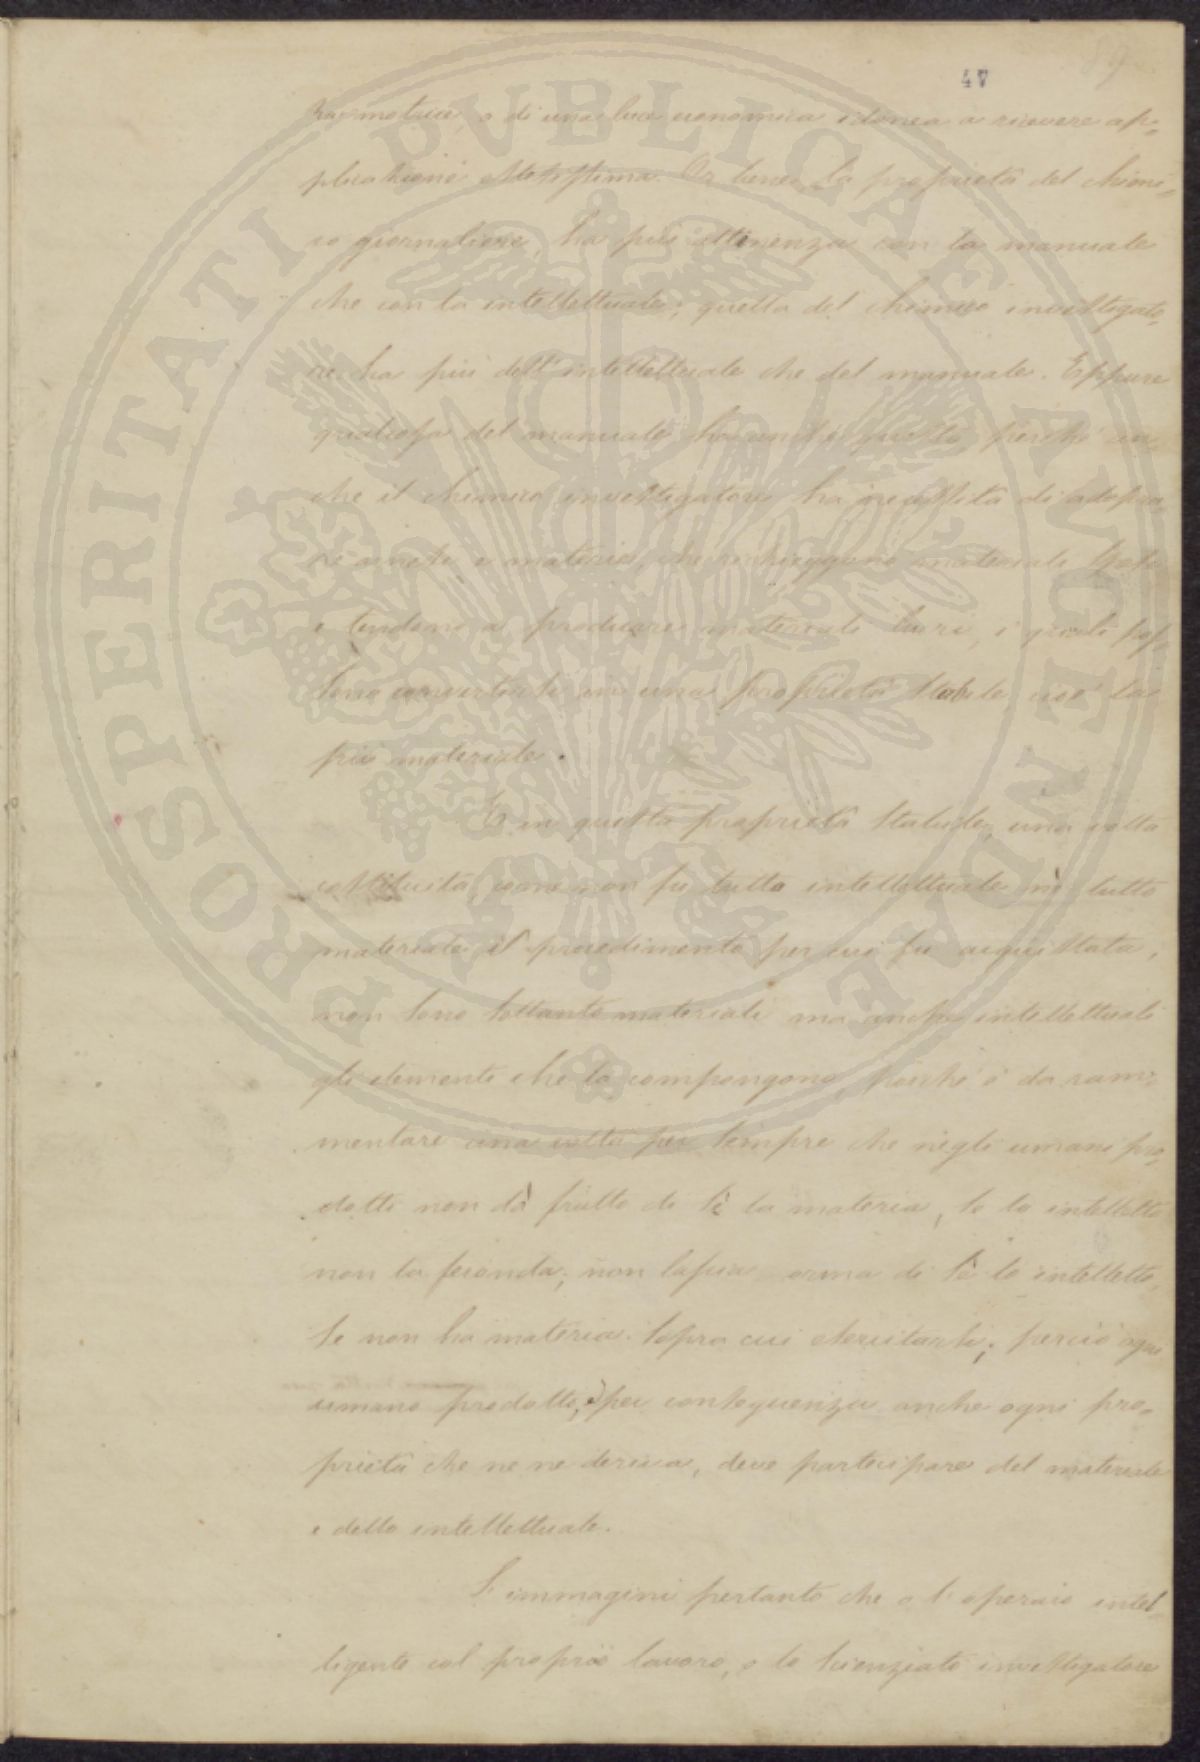 47
89
za motrice, o di una luce economica idonea a ricevere ap-
plicazione estesissima. Or bene, la proprietà del chimi-
co giornaliere, ha più attinenza con la manuale
che con la intellettuale; quella del chimico investigato-
re ha più dell'intellettuale che del manuale. Eppure
qualcosa del manuale ha anche questa, perchè an-
che il chimico investigatore ha necessità di adopra-
re arnesi e materie, che richieggono materiali spese
e tendono a produrre materiali lucri, i quali pos-
sono convertirsi in una proprietà stabile cioè la
più materiale.
E in questa proprietà stabile, una volta
costituita, come non fu tutto intellettuale nè tutto
materiale il procedimento per cui fu acquistata,
non sono soltanto materiali ma anche intellettuali
gli elementi che la compongono, poichè è da ram-
mentare una volta per sempre che negli umani pro-
dotti non dà frutto di sè la materia, se lo intelletto
non la feconda; non lascia orma di sè lo intelletto,
se non ha materia sopra cui esercitarsi; perciò ogni
umano prodotto, e per conseguenza anche ogni pro-
prietà che ne ne deriva, deve partecipare del materiale
e dello intellettuale.
S'immagini pertanto che o l'operaio intel-
ligente col proprio lavoro, o lo scienziato investigatore
PROSPERITATI PVBLICAE AVGENDAE